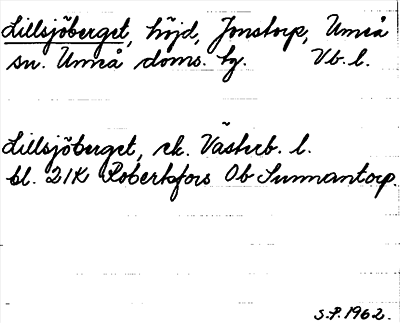 Lillsjöberget, höjd, Jonstorp, Umeå
sn. Umeå doms. hg. Vb. l.
Lillsjöberget, ek. Västerb. l.
bl. 21K Robertsfors Ob Sunnantorp.
S.P. 1962.